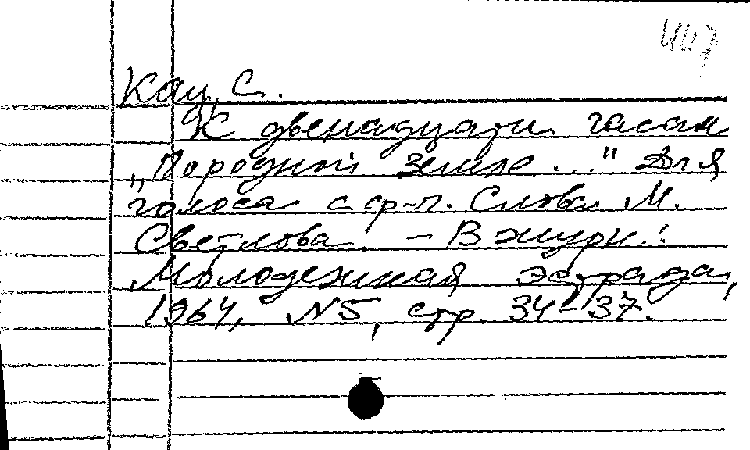 Кац, С.
К двенадцати часам
„По родной земле..." Для
голоса с ф-п. Слова М.
Светлова. – В журн.:
Молодежная эстрада,
1964, №5, стр. 34-37.